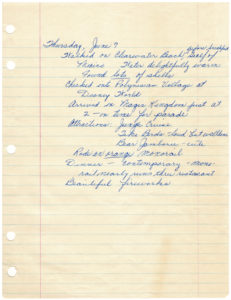 Thursday, June 7
Walked on Clearwater Beach Gulf of
Mexico Water delightfully warm
Found lots of shells
Checked into Polynesian Village at
Disney World
Arrived in Magic Kingdom just at
2 - in time for parade
Attractions: Jungle Cruise
Bear Jamboree - cute
Rode on orange monorail
Dinner - Contemporary - mono-
rail nearly runs thru restaurant
Beautiful fireworks